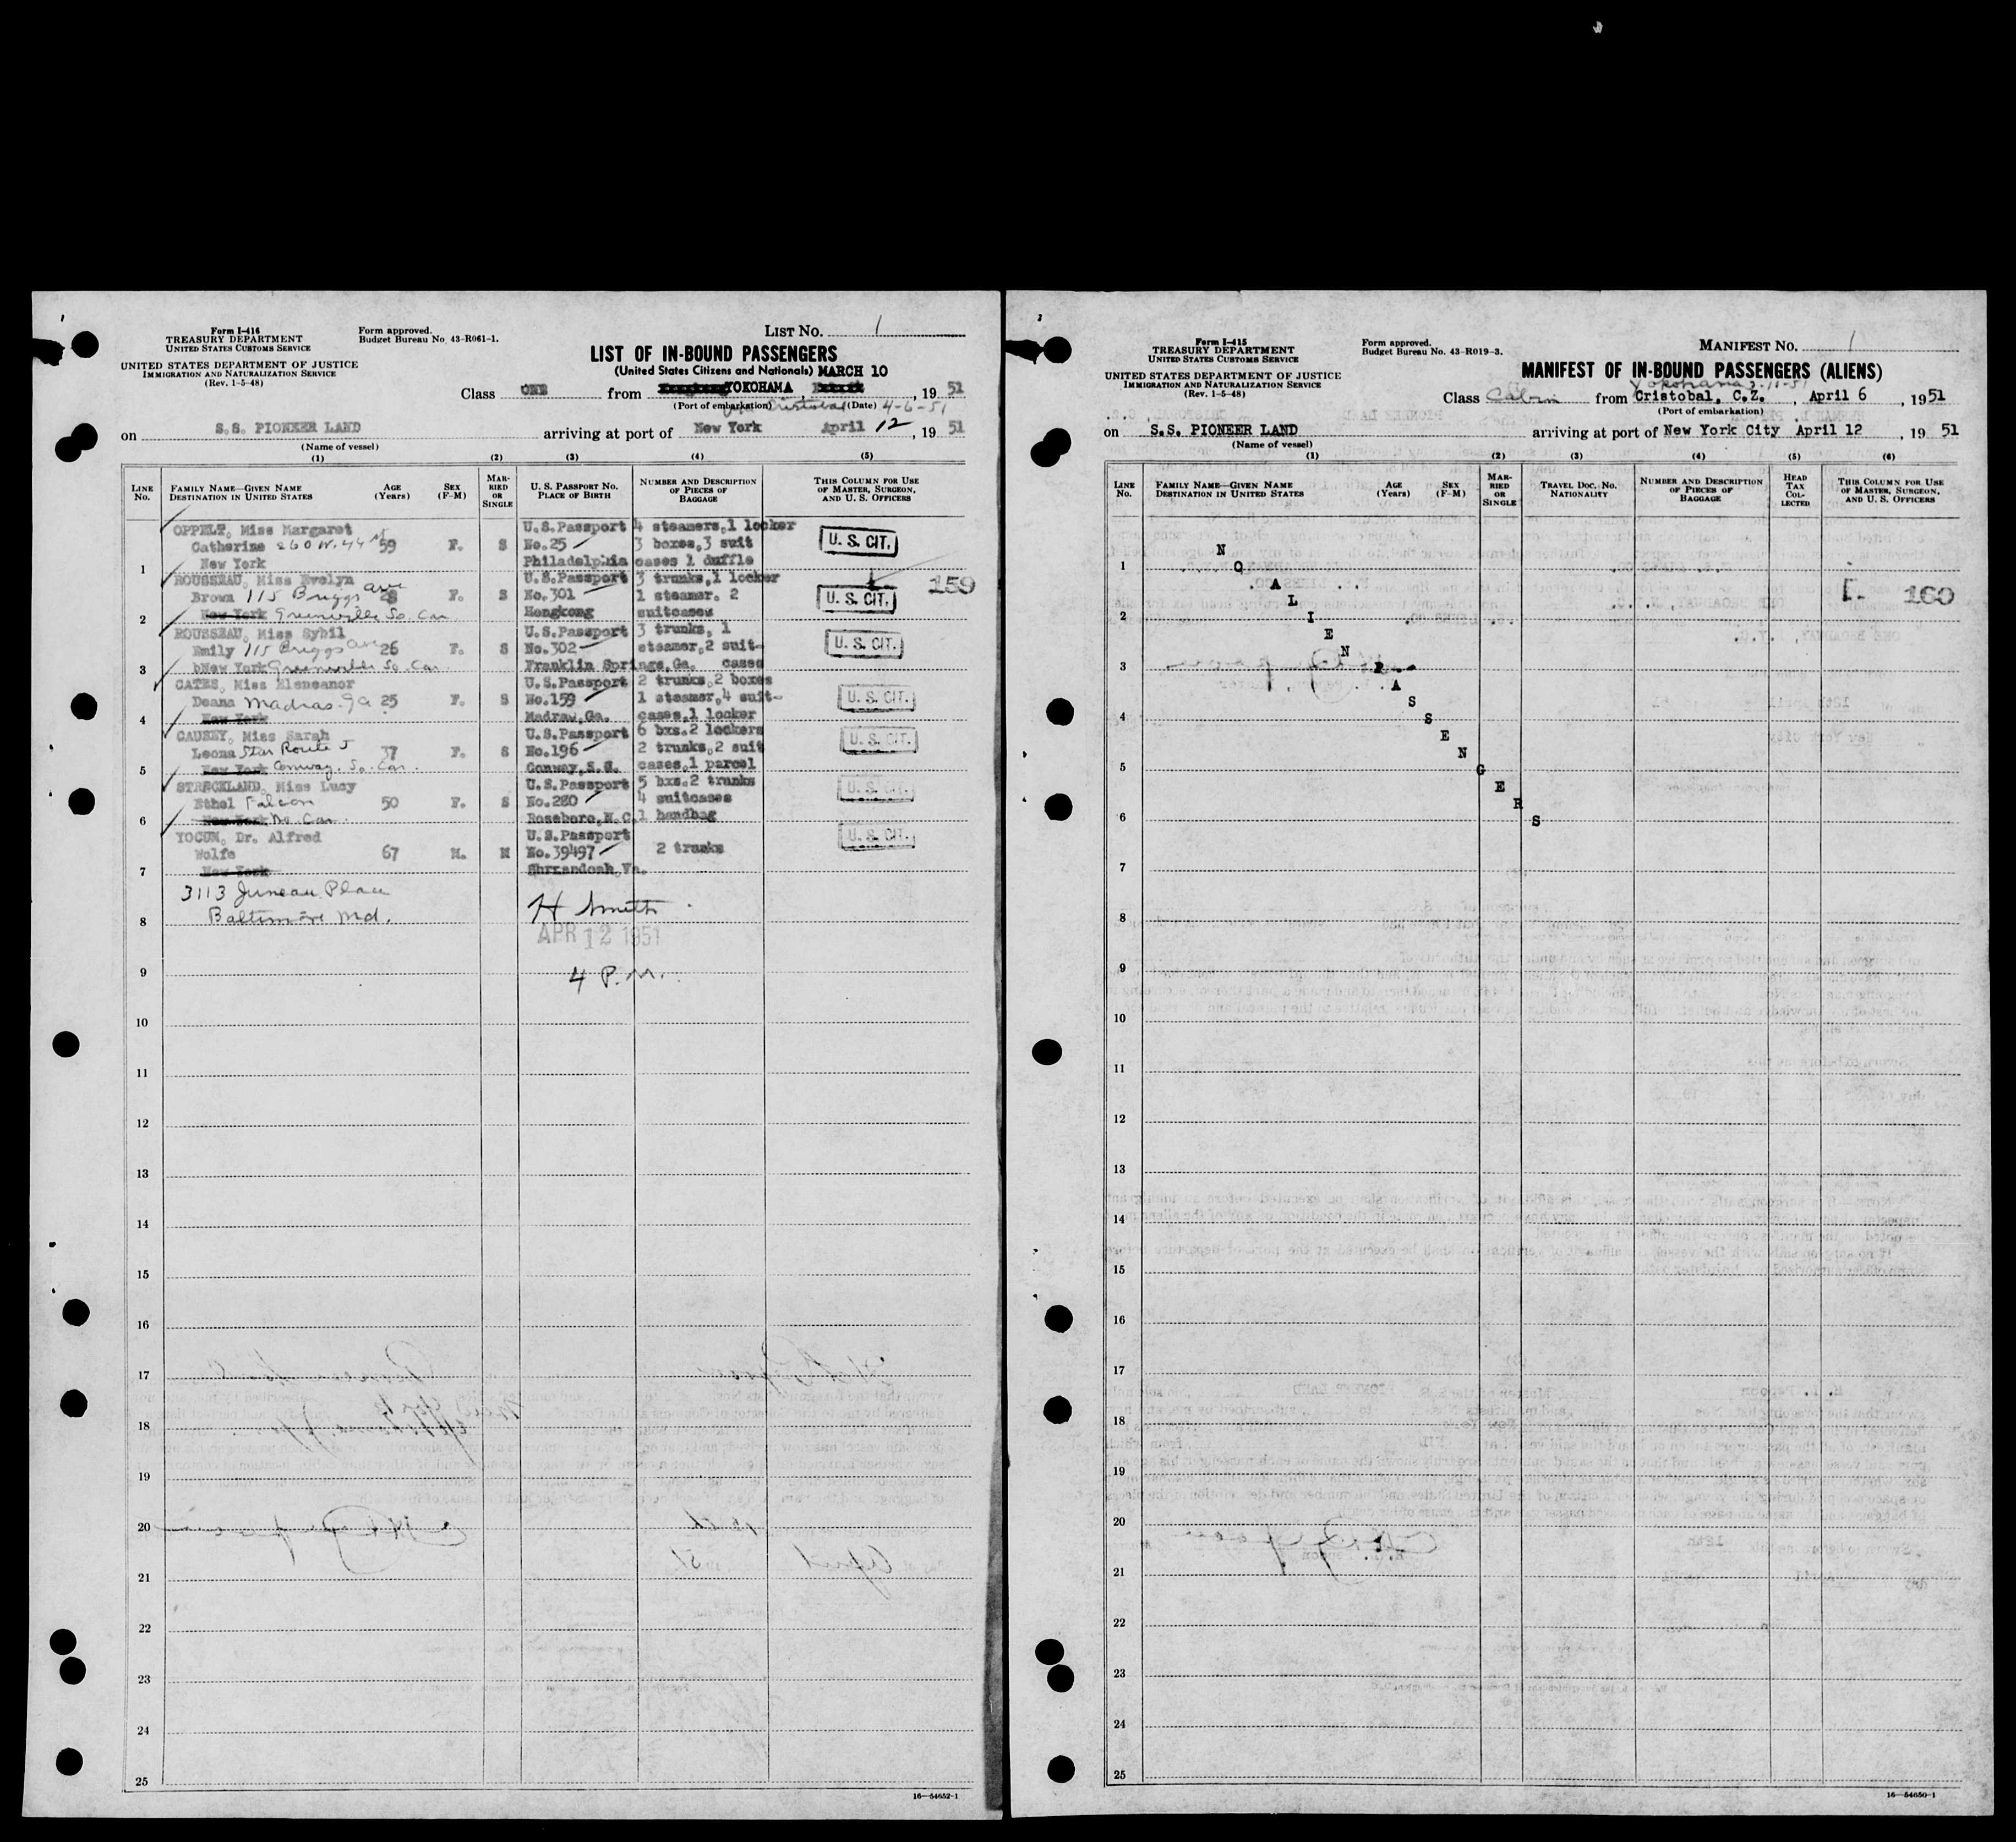 Form I-416
TREASURY DEPARTMENT
UNITED STATES CUSTOMS SERVICE
UNITED STATES DEPARTMENT OF JUSTICE
IMMIGRATION AND NATURALIZATION SERVICE
(Rev. 1-5-48)
Form approved.
Budget Bureau No. 43-R061-1.
LIST NO. 1
LIST OF IN-BOUND PASSENGERS
(United States Citizens and Nationals) MARCH 10
Class ONE from YOKOHAMA, 1951
(Port of embarkation) Cristobal (Date) 4-6-51
on S.S. PIONEER LAND arriving at port of New York April 12, 1951
(Name of vessel)
(1) (2) (3) (4) (5)
LINE NO.
FAMILY NAME—GIVEN NAME
DESTINATION IN UNITED STATES
AGE (Years)
SEX (F-M)
MARRIED OR SINGLE
U. S. PASSPORT NO.
PLACE OF BIRTH
NUMBER AND DESCRIPTION OF PIECES OF BAGGAGE
THIS COLUMN FOR USE OF MASTER, SURGEON, AND U. S. OFFICERS
OPPELT, Miss Margaret U.S.Passport 4 steamers,1 locker
Catherine 260 W. 44 St 59 F. S No.25 3 boxes,3 suit U. S. CIT.
1 New York Philadelphia cases 1 duffle
ROUSSEAU, Miss Evelyn U.S.Passport 3 trunks,1 locker 159
Brown 115 Briggs Ave 28 F. S No.301 1 steamer. 2 U. S. CIT.
2 New York Greenville So. Car. Hongkong suitcases
ROUSSEAU, Miss Sybil U.S.Passport 3 trunks, 1
Emily 115 Briggs Ave 26 F. S No.302 steamer,2 suit- U. S. CIT.
3 bNew York Greenville So. Car. Franklin Springs,Ga. cases
CATES, Miss Eleneanor U.S.Passport 2 trunks,2 boxes
Deana Madras. Ga 25 F. S No.159 1 steamer,4 suit- U. S. CIT.
4 New York Madraw,Ga. cases,1 locker
CAUSEY, Miss Sarah U.S.Passport 6 bxs.2 lockers
Leona Star Route 5 37 F. S No.196 2 trunks,2 suit U. S. CIT.
5 New York Conway, So. Car. Conway,S.C. cases,1 parcel
STRICKLAND, Miss Lucy U.S.Passport 5 bxs.2 trunks
Ethel Falcon 50 F. S No.280 4 suitcases U. S. CIT.
6 New York No. Car. Roseboro,N.C. 1 handbag
YOCUM, Dr. Alfred U.S.Passport
Wolfe 67 M. M No.39497 2 trunks U. S. CIT.
7 New York Shrnandoah,Va.
3113 Juneau Place
8 Baltimore Md. H Smith
APR 12 1951
9 4 P.M.
10
11
12
13
14
15
16
17
18
19
20
21
22
23
24
25
16—54652-1
Form I-415
TREASURY DEPARTMENT
UNITED STATES CUSTOMS SERVICE
UNITED STATES DEPARTMENT OF JUSTICE
IMMIGRATION AND NATURALIZATION SERVICE
(Rev. 1-5-48)
Form approved.
Budget Bureau No. 43-R019-3.
MANIFEST NO. 1
MANIFEST OF IN-BOUND PASSENGERS (ALIENS)
Yokohama
Class Cabin from Cristobal, C.Z., April 6, 1951
(Port of embarkation)
on S.S. PIONEER LAND arriving at port of New York City April 12, 19 51
(Name of vessel)
(1) (2) (3) (4) (5) (6)
LINE NO.
FAMILY NAME—GIVEN NAME
DESTINATION IN UNITED STATES
AGE (Years)
SEX (F-M)
MARRIED OR SINGLE
TRAVEL DOC. NO.
NATIONALITY
NUMBER AND DESCRIPTION OF PIECES OF BAGGAGE
HEAD TAX COLLECTED
THIS COLUMN FOR USE OF MASTER, SURGEON, AND U. S. OFFICERS
NO ALIEN PASSENGERS
160
1
2
3
4
5
6
7
8
9
10
11
12
13
14
15
16
17
18
19
20
21
22
23
24
25
16—54650-1